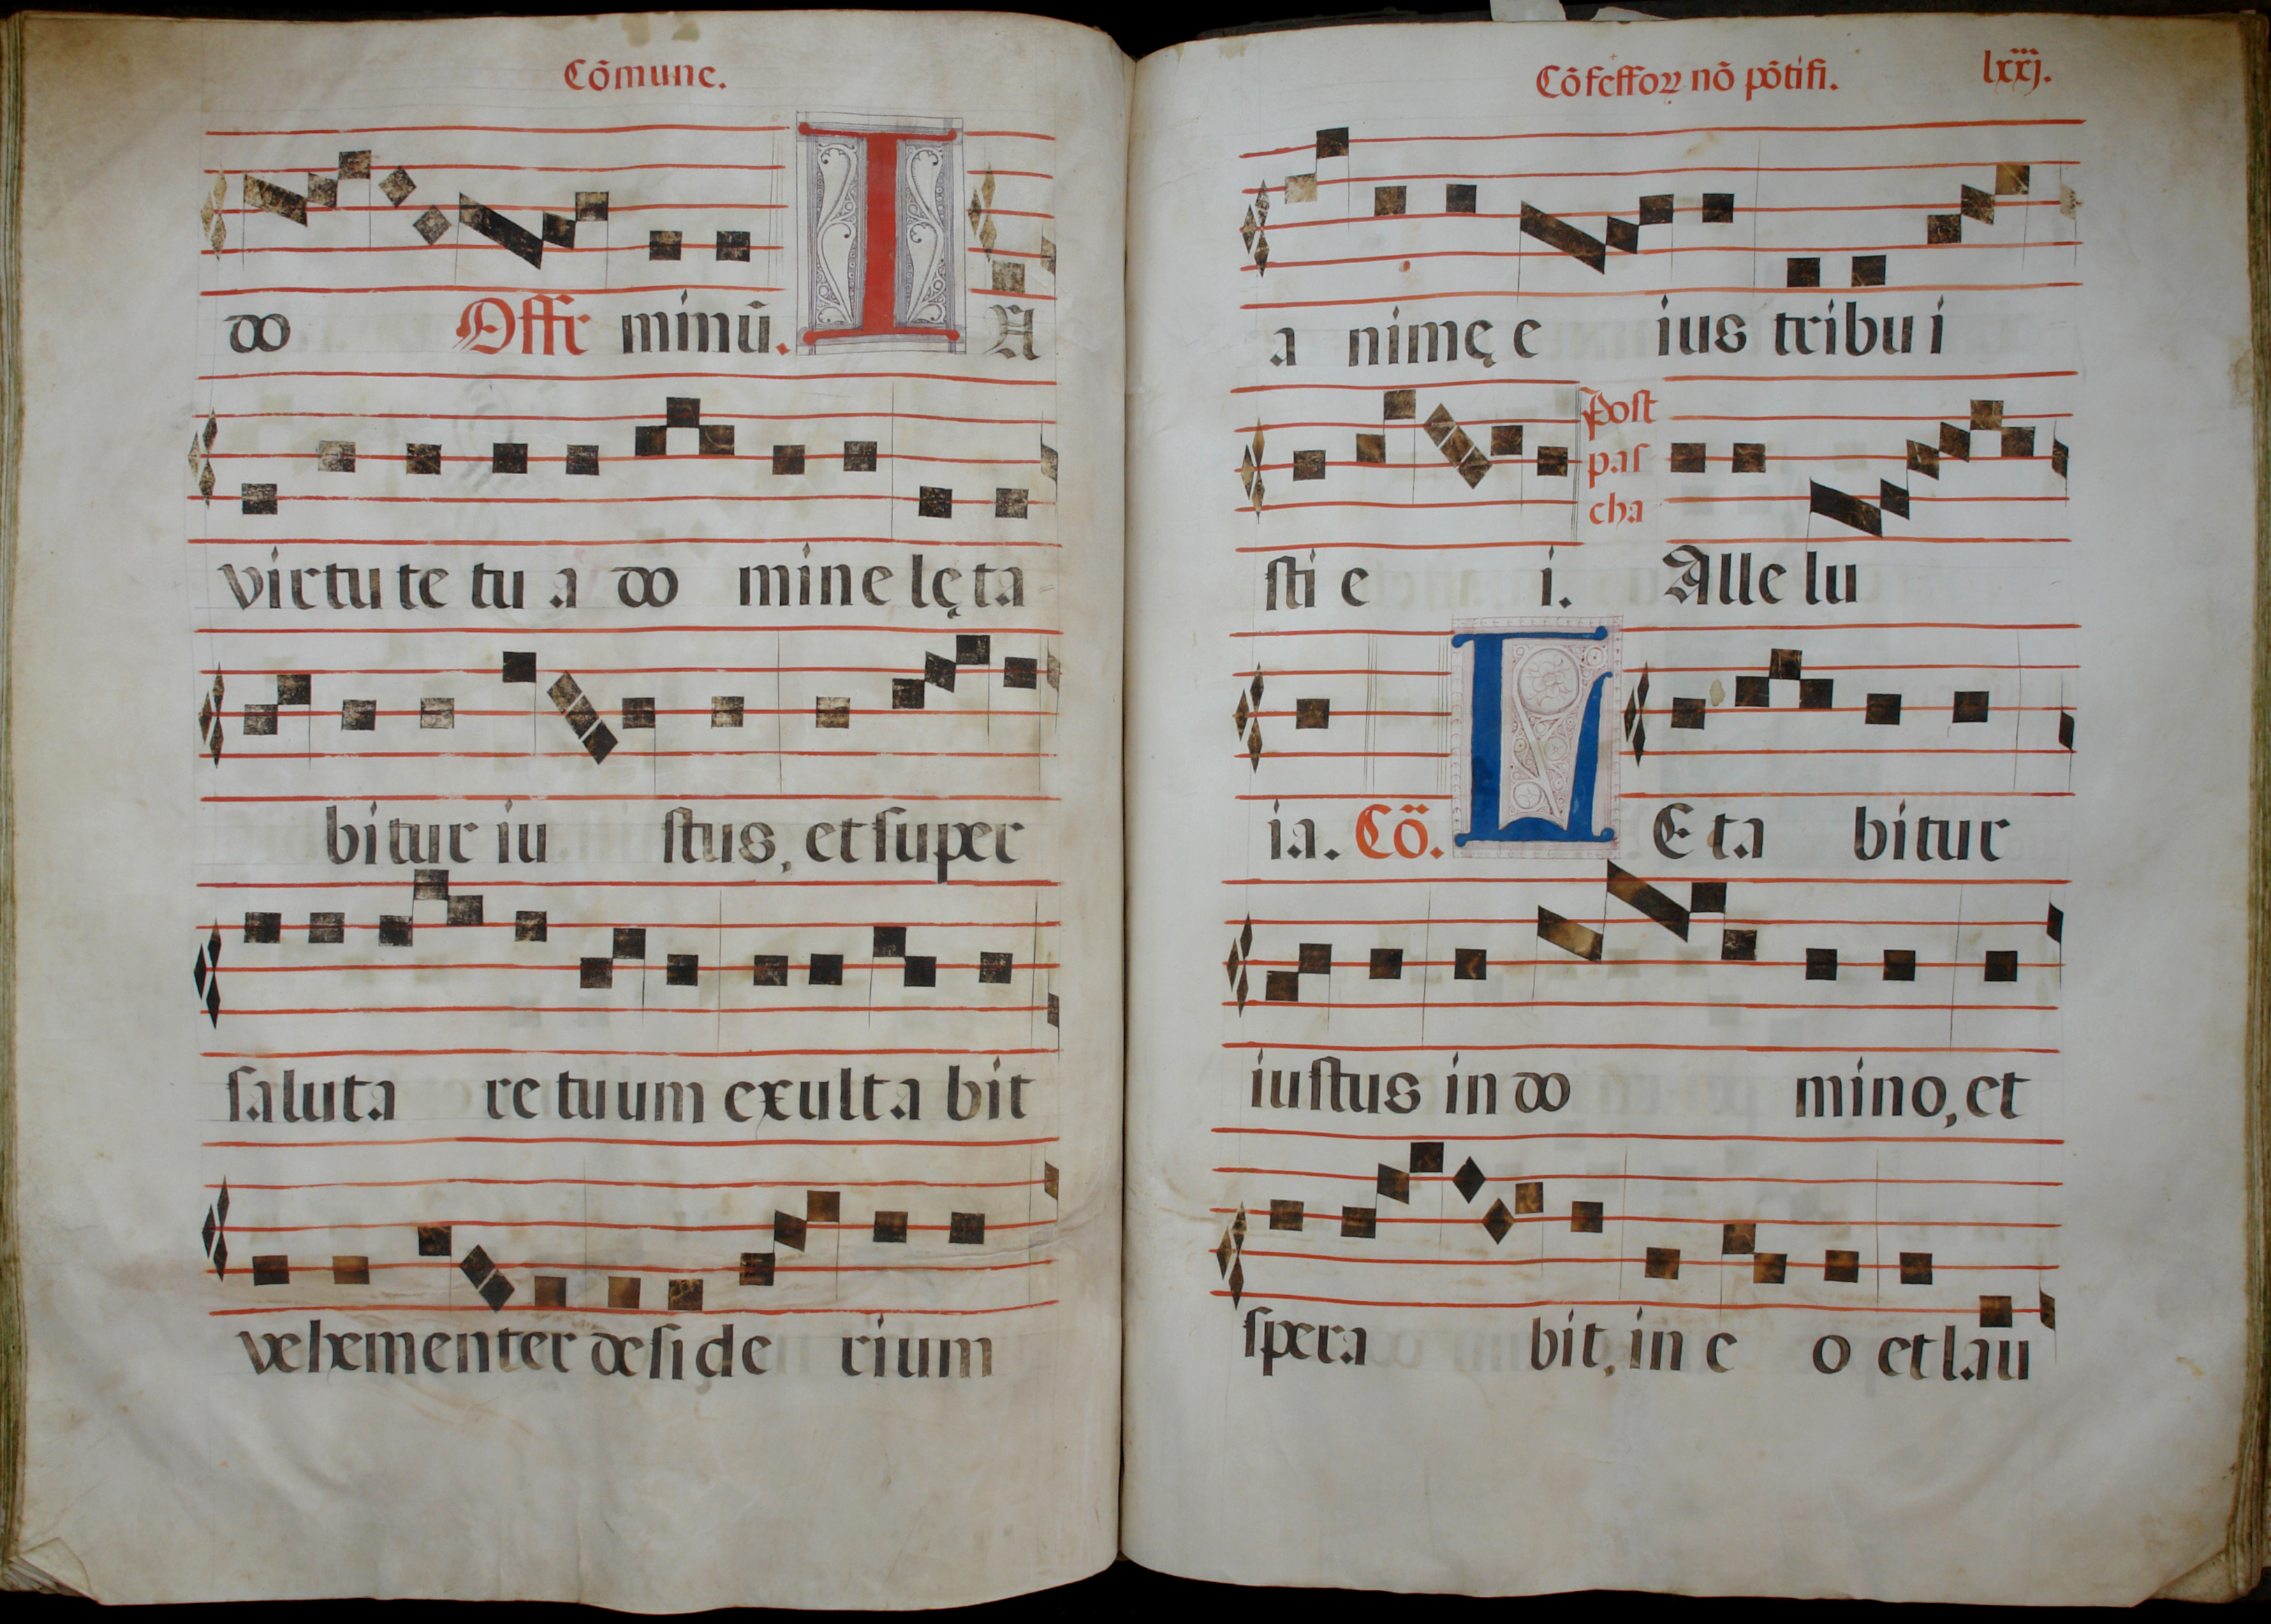 Cōmune.
do Offe minū. I N
virtu te tu a do mine lęta
bitur iu stus, et super
saluta re tuum exulta bit
vehementer deside rium
Cōfessoꝝ nō pōtifi. lxxj.
a nimę e ius tribu i
sti e i. Post pas cha Alle lu
ia. Cō. L Eta bitur
iustus in do mino, et
spera bit, in e o et lau